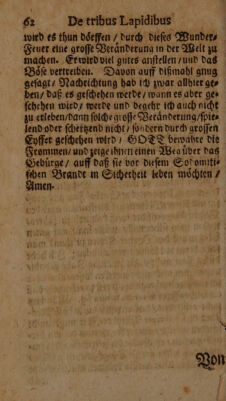 62 De tribus Lapidibus
wird es thun dörffen / durch dieses Wunder-
Feuer eine grosse Veränderung in der Welt zu
machen. Er wird viel gutes anstellen / und das
Böse vertreiben. Davon auff dißmahl gnug
gesagt / Nachrichtung hab ich zwar allhier ge-
ben / daß es geschehen werde / wann es aber ge-
schehen wird / werde und begehr ich auch nicht
zu erleben / dann solche grosse Veränderung / spie-
lend oder schertzend nicht / sondern durch grossen
Eyffer geschehen wird / GOTT bewahre die
Frommen / und zeige ihnen einen Weg über das
Gebürge / auff daß sie vor diesem Sodomiti-
schen Brandt in Sicherheit leben möchten /
Amen.
Von